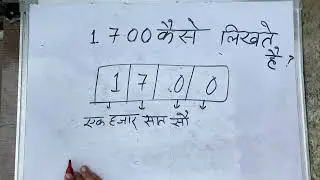 1700 कैसे लिखते है ?
1 7 0 0
एक हजार सात सौ